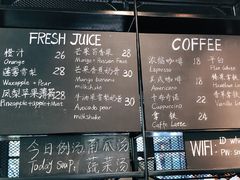 FRESH JUICE
橙汁 26
Orange
莲雾香梨 28
Waxapple + Pear
凤梨苹果薄荷 28
Pineapple+apple+Mint
芒果百香果 28
Mango + Passion Fruit
芒果香蕉奶昔 30
Mango Banana
milkshake
牛油果香梨奶昔 30
Avocado pear
milkshake
COFFEE
浓缩咖啡 18
Espresso
美式咖啡 18
Americano
卡布奇诺 22
Cappuccino
拿铁 24
Caffe Latte
平白
Flat
今日例汤 南瓜汤
Today Soup: 蔬菜汤
WIFI: